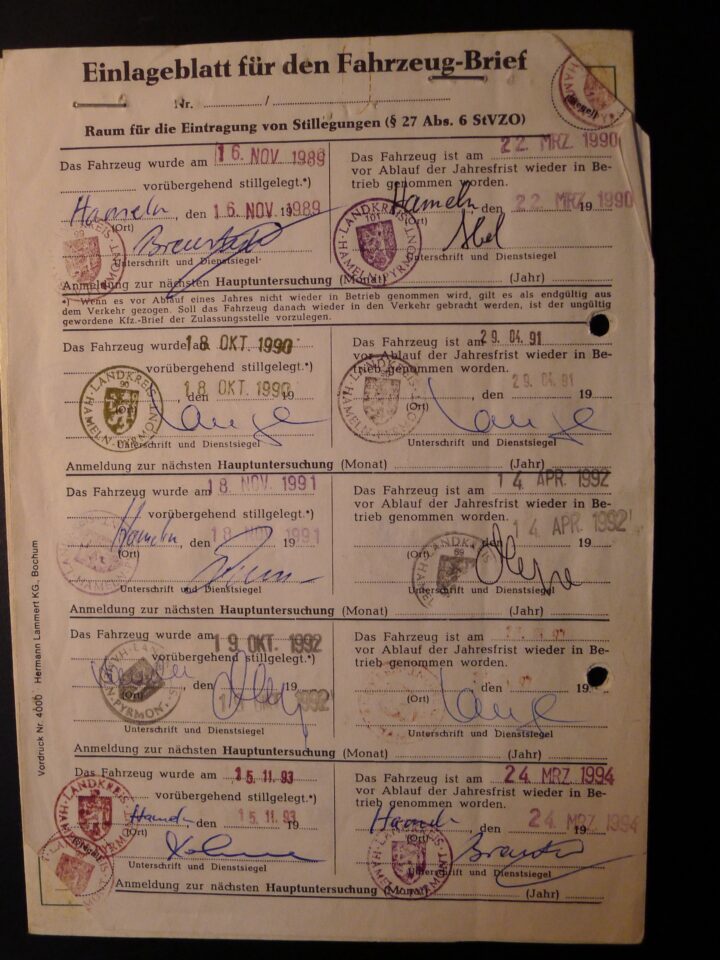 Einlageblatt für den Fahrzeug-Brief
Nr. /
Raum für die Eintragung von Stillegungen (§ 27 Abs. 6 StVZO)
Das Fahrzeug wurde am 16. NOV. 1989
vorübergehend stillgelegt.*)
Hameln, den 16. NOV. 1989 19
(Ort)
Unterschrift und Dienstsiegel
LANDKREIS HAMELN-PYRMONT
Das Fahrzeug ist am 22. MRZ. 1990
vor Ablauf der Jahresfrist wieder in Be-
trieb genommen worden.
Hameln, den 22. MRZ. 1990 19
(Ort)
Abel
Unterschrift und Dienstsiegel
LANDKREIS HAMELN-PYRMONT 101
Anmeldung zur nächsten Hauptuntersuchung (Monat) (Jahr)
*) Wenn es vor Ablauf eines Jahres nicht wieder in Betrieb genommen wird, gilt es als endgültig aus
dem Verkehr gezogen. Soll das Fahrzeug danach wieder in den Verkehr gebracht werden, ist der ungültig
gewordene Kfz.-Brief der Zulassungsstelle vorzulegen.
Das Fahrzeug wurde am 18. OKT. 1990
vorübergehend stillgelegt.*)
, den 18. OKT. 1990 19
(Ort)
Lange
Unterschrift und Dienstsiegel
LANDKREIS HAMELN-PYRMONT 90
Das Fahrzeug ist am 29. 04. 91
vor Ablauf der Jahresfrist wieder in Be-
trieb genommen worden.
, den 29. 04. 91 19
(Ort)
Lange
Unterschrift und Dienstsiegel
LANDKREIS HAMELN-PYRMONT
Anmeldung zur nächsten Hauptuntersuchung (Monat) (Jahr)
Das Fahrzeug wurde am 18. NOV. 1991
vorübergehend stillgelegt.*)
Hameln, den 18. NOV. 1991 19
(Ort)
Unterschrift und Dienstsiegel
Das Fahrzeug ist am 14. APR. 1992
vor Ablauf der Jahresfrist wieder in Be-
trieb genommen worden.
, den 14. APR. 1992 19
(Ort)
Unterschrift und Dienstsiegel
LANDKREIS HAMELN 99
Anmeldung zur nächsten Hauptuntersuchung (Monat) (Jahr)
Das Fahrzeug wurde am 19. OKT. 1992
vorübergehend stillgelegt.*)
, den 1992 19
(Ort)
Unterschrift und Dienstsiegel
HAMELN-PYRMONT
Das Fahrzeug ist am
vor Ablauf der Jahresfrist wieder in Be-
trieb genommen worden.
, den 19
(Ort)
Lange
Unterschrift und Dienstsiegel
Anmeldung zur nächsten Hauptuntersuchung (Monat) (Jahr)
Das Fahrzeug wurde am 15. 11. 93
vorübergehend stillgelegt.*)
Hameln, den 15. 11. 93 19
(Ort)
Unterschrift und Dienstsiegel
LANDKREIS HAMELN-PYRMONT
Das Fahrzeug ist am 24. MRZ. 1994
vor Ablauf der Jahresfrist wieder in Be-
trieb genommen worden.
Hameln, den 24. MRZ. 1994 19
(Ort)
Unterschrift und Dienstsiegel
Anmeldung zur nächsten Hauptuntersuchung (Monat) (Jahr)
Vordruck Nr. 4000 Hermann Lammert KG., Bochum